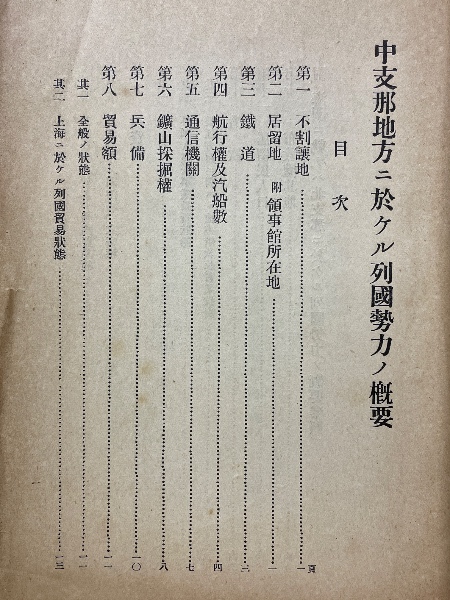 中支那地方ニ於ケル列國勢力ノ概要
目次
頁
第一 不割讓地………一
第二 居留地 附 領事館所在地………二
第三 鐵道………三
第四 航行權及汽船數………四
第五 通信機關………七
第六 鑛山採掘權………八
第七 兵備………一〇
第八 貿易額………一一
其一 全般ノ狀態………一一
其二 上海ニ於ケル列國貿易狀態………一三